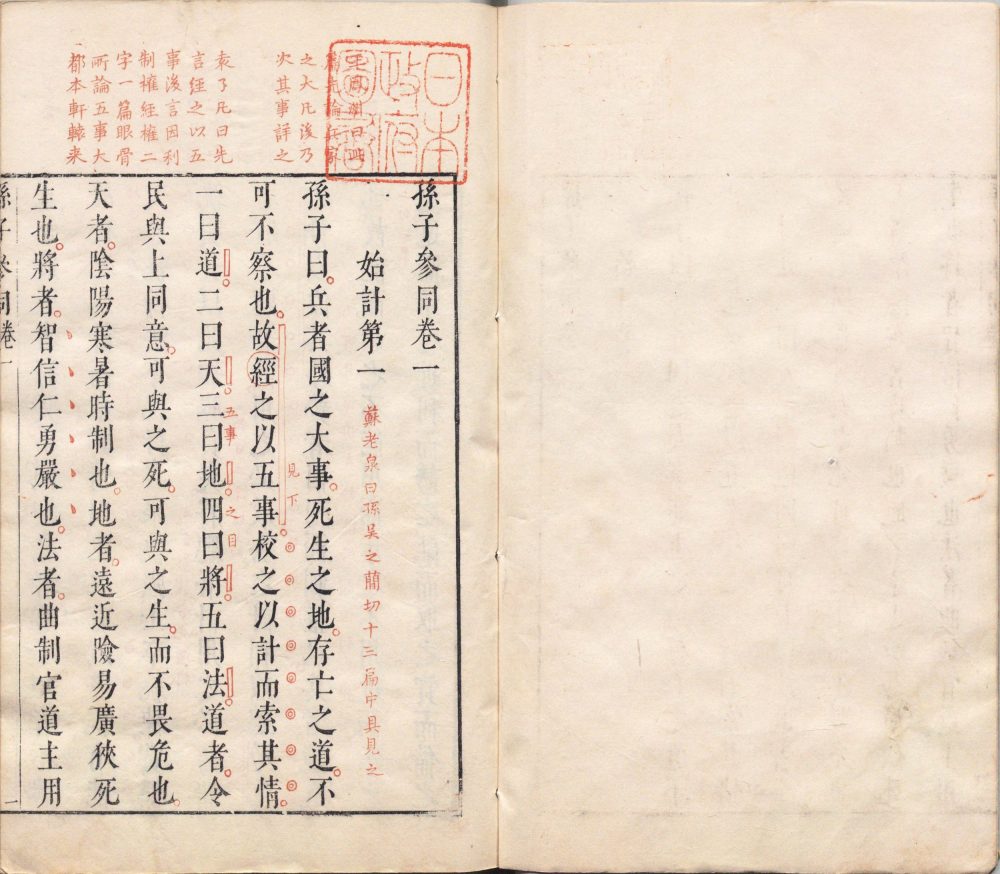 日本
政府
圖書
之大凡後乃
次其事詳之
袁了凡曰先
言經之以五
事後言因利
制權經權二
字一篇眼骨
所論五事大
都本軒轅来
孫子參同卷一
始計第一
蘇老泉曰孫吳之蕳切十三扁中具見之
孫子曰兵者國之大事死生之地存亡之道不
可不察也故經之以五事校之以計而索其情
見下
一曰道二曰天三曰地四曰將五曰法道者令
五事之目
民與上同意可與之死可與之生而不畏危也
天者陰陽寒暑時制也地者遠近險易廣狹死
生也將者智信仁勇嚴也法者曲制官道主用
孫子參同卷一
一